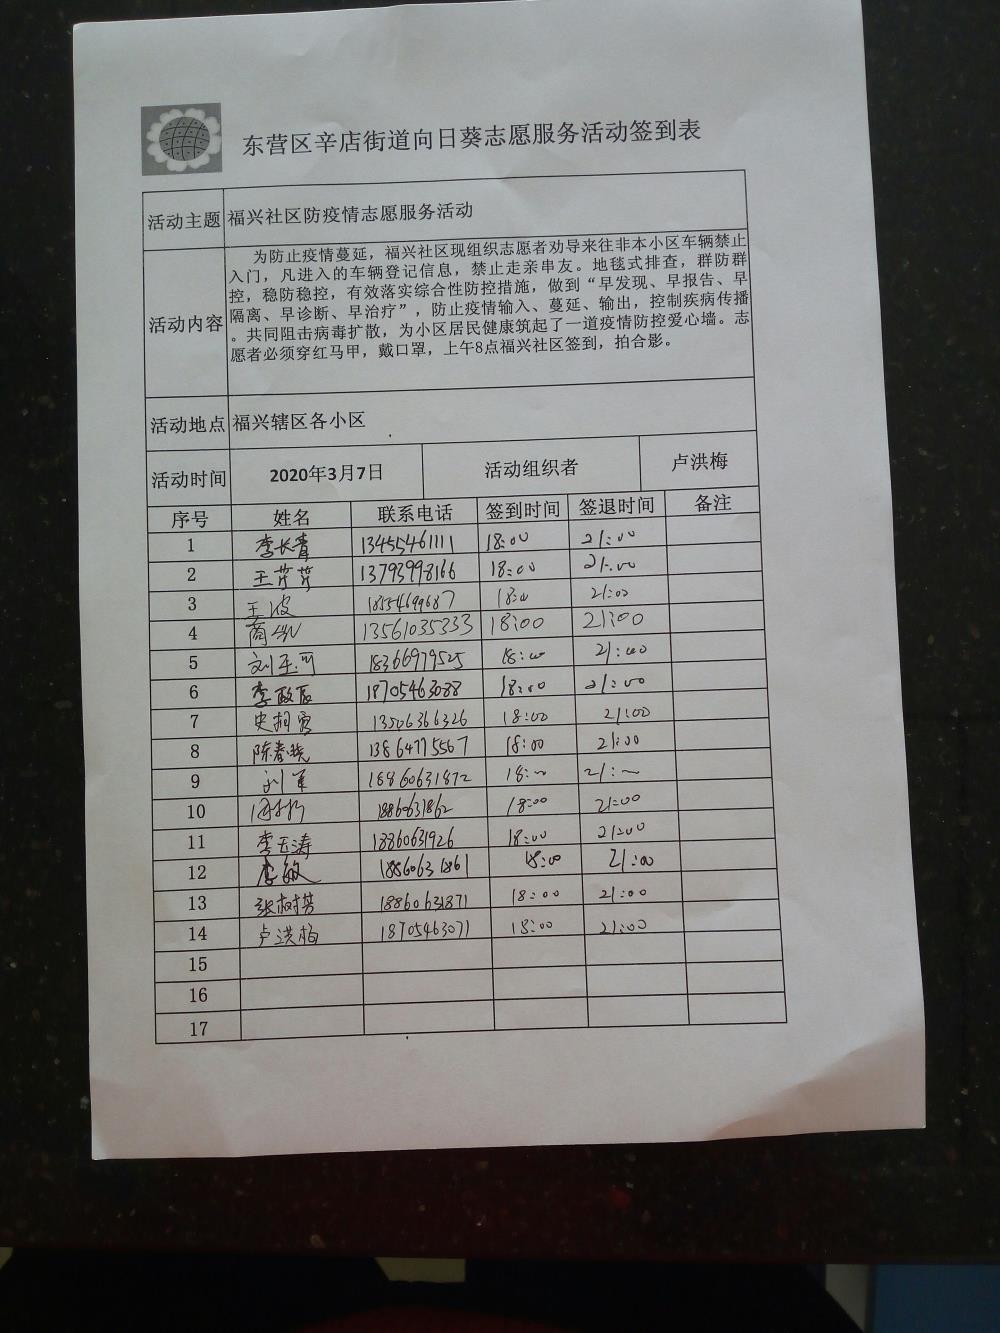 东营区辛店街道向日葵志愿服务活动签到表
活动主题 福兴社区防疫情志愿服务活动
活动内容
为防止疫情蔓延，福兴社区现组织志愿者劝导来往非本小区车辆禁止
入门，凡进入的车辆登记信息，禁止走亲串友。地毯式排查，群防群
控，稳防稳控，有效落实综合性防控措施，做到“早发现、早报告、早
隔离、早诊断、早治疗”，防止疫情输入、蔓延、输出，控制疾病传播
。共同阻击病毒扩散，为小区居民健康筑起了一道疫情防控爱心墙。志
愿者必须穿红马甲，戴口罩，上午8点福兴社区签到，拍合影。
活动地点 福兴辖区各小区
活动时间 2020年3月7日 活动组织者 卢洪梅
序号 姓名 联系电话 签到时间 签退时间 备注
1 李长青 13455461111 18:00 21:00
2 王芹芹 13793998166 18:00 21:00
3 王波 18554699687 18:00 21:00
4 13561035333 18:00 21:00
5 18366979525 18:00 21:00
6 李政辰 18705463088 18:00 21:00
7 13506366326 18:00 21:00
8 陈春晓 13864775567 18:00 21:00
9 刘军 18860631872 18:00 21:00
10 18860631862 18:00 21:00
11 李玉涛 18860631926 18:00 21:00
12 李敏 18860631861 18:00 21:00
13 张树芳 18860631871 18:00 21:00
14 卢洪梅 18705463071 18:00 21:00
15
16
17